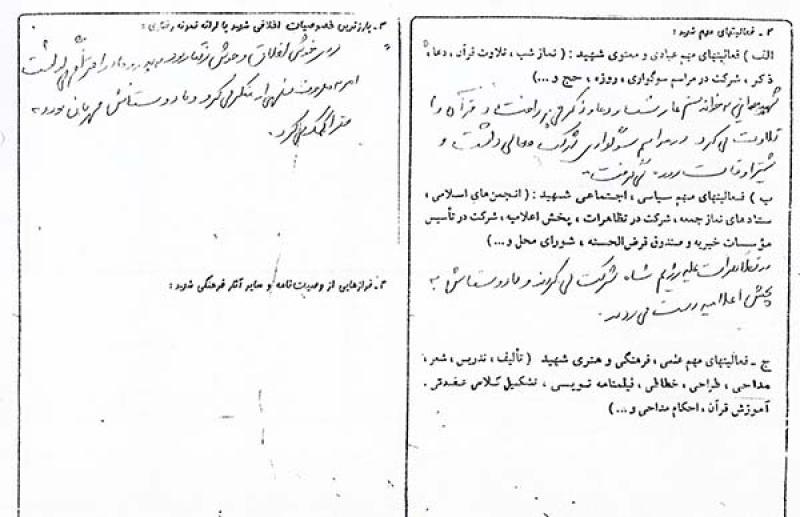 ۲ - فعالیتهای مهم شهید :
الف ) فعالیتهای مهم عبادی و معنوی شهید : ( نماز شب ، تلاوت قرآن ، دعا ،
ذکر ، شرکت در مراسم سوگواری ، روزه ، حج و ... )
شهید به خواندن نماز شب و دعا و ذکر می پرداخت و قرآن را
تلاوت می کرد . در مراسم سوگواری شرکت فعالی داشت و
بیشتر اوقات روزه می گرفت .
ب ) فعالیتهای مهم سیاسی ، اجتماعی شهید : ( انجمن‌های اسلامی ،
ستادهای نماز جمعه ، شرکت در تظاهرات ، پخش اعلامیه ، شرکت در تأسیس
مؤسسات خیریه و صندوق قرض‌الحسنه ، شورای محل و ... )
در تظاهرات علیه رژیم شاه شرکت می کردند و با دوستانش به
پخش اعلامیه دست می زدند .
ج - فعالیتهای مهم علمی ، فرهنگی و هنری شهید ( تألیف ، تدریس ، شعر ،
مداحی ، طراحی ، خطاطی ، فیلمنامه نویسی ، تشکیل کلاس عقیدتی ،
آموزش قرآن ، احکام مداحی و ... )
۳ - بارزترین خصوصیات اخلاقی شهید با ارائه نمونه رفتاری :
خوش اخلاق و خوش رفتار بود به پدر و مادر احترام می گذاشت
امر به معروف و نهی از منکر می کرد و با دوستانش مهربان بود و به
فقرا کمک می کرد .
۴ - فرازهایی از وصیت نامه و سایر آثار فرهنگی شهید :